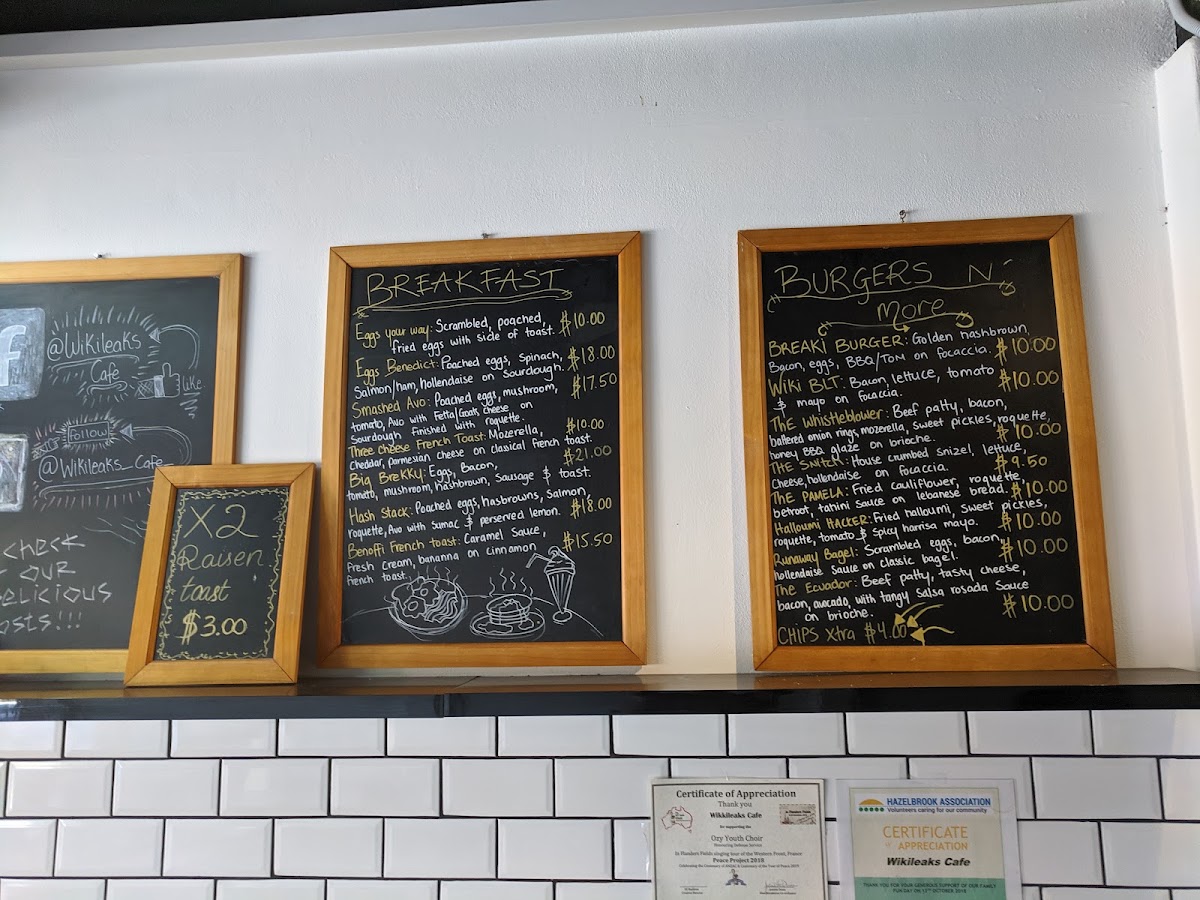 f
@Wikileaks
Cafe
like
Follow
@Wikileaks_Cafe
check
our
elicious
osts!!!
X2
Raisen
toast
$3.00
BREAKFAST
Eggs your way: Scrambled, poached, $10.00
fried eggs with side of toast.
Eggs Benedict: Poached eggs, Spinach, $18.00
Salmon/ham, hollendaise on Sourdough.
Smashed Avo: Poached eggs, mushroom, $17.50
tomato, Avo with Fetta/Goats cheese on
Sourdough finished with roquette
Three cheese French Toast: Mozerella, $10.00
Cheddar, Parmesian cheese on classical French toast.
Big Brekky: Eggs, Bacon, $21.00
tomato, mushroom, hashbrown, Sausage & toast.
Hash Stack: Poached eggs, hasbrowns, Salmon, $18.00
roquette, Avo with Sumac & perserved lemon.
Benoffi French toast: Caramel Sauce, $15.50
Fresh cream, bananna on cinnamon
french toast.
BURGERS N'
More
BREAKI BURGER: Golden hashbrown,
Bacon, eggs, BBQ/TOM on focaccia. $10.00
Wiki BLT: Bacon, lettuce, tomato $10.00
& mayo on focaccia.
THE Whistleblower: Beef patty, bacon,
battered onion rings, mozerella, sweet pickles, roquette,
honey BBQ glaze on brioche. $10.00
THE SNITCH: House crumbed snizel, lettuce,
Cheese, hollendaise on focaccia. $9.50
THE PAMELA: Fried cauliflower, roquette,
betroot, tahini sauce on lebanese bread. $10.00
Halloumi HACKER: Fried halloumi, sweet pickles,
roquette, tomato & spicy harrisa mayo. $10.00
Runaway Bagel: Scrambled eggs, bacon, $10.00
hollendaise Sauce on classic bagel.
The Ecuador: Beef patty, tasty cheese,
bacon, avocado, with tangy Salsa rosada Sauce
on brioche. $10.00
CHIPS Xtra $4.00
Certificate of Appreciation
Thank you
Wikkileaks Cafe
for supporting the
Ozy Youth Choir
In Flanders Fields singing tour of the Western Front, France
Peace Project 2018
HAZELBROOK ASSOCIATION
Volunteers caring for our community
CERTIFICATE
of APPRECIATION
Wikileaks Cafe
THANK YOU FOR YOUR GENEROUS SUPPORT OF OUR FAMILY
FUN DAY ON 13TH OCTOBER 2018